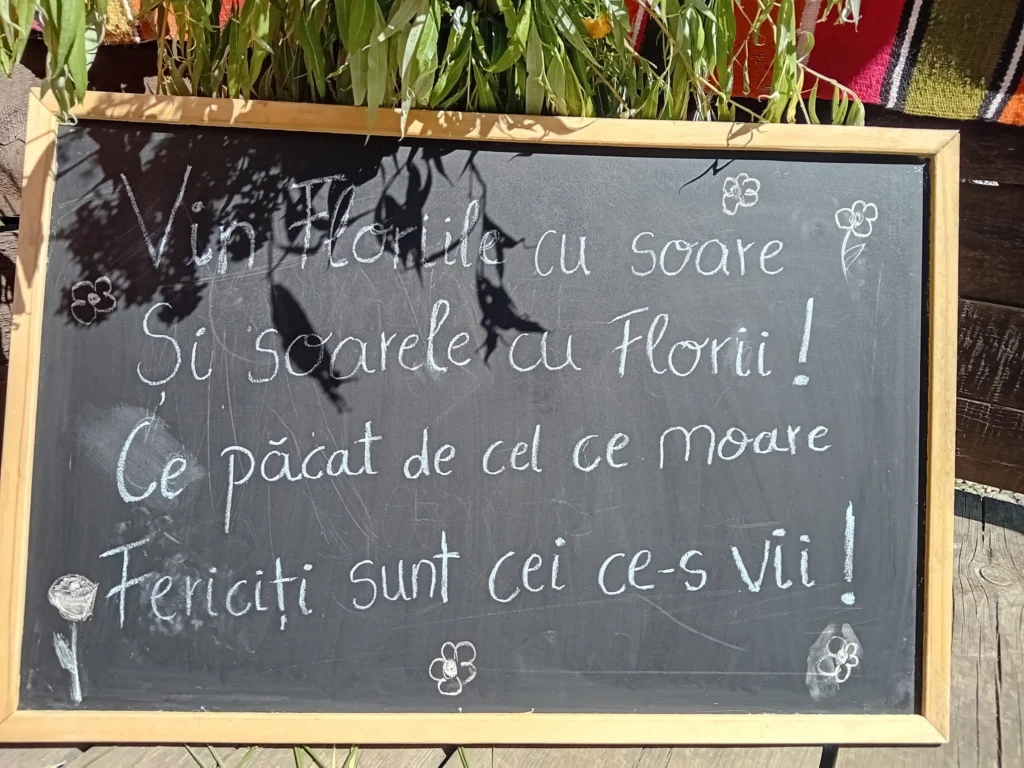 Vin Floriile cu soare
Și soarele cu Florii!
Ce păcat de cel ce moare
Fericiți sunt cei ce-s vii!